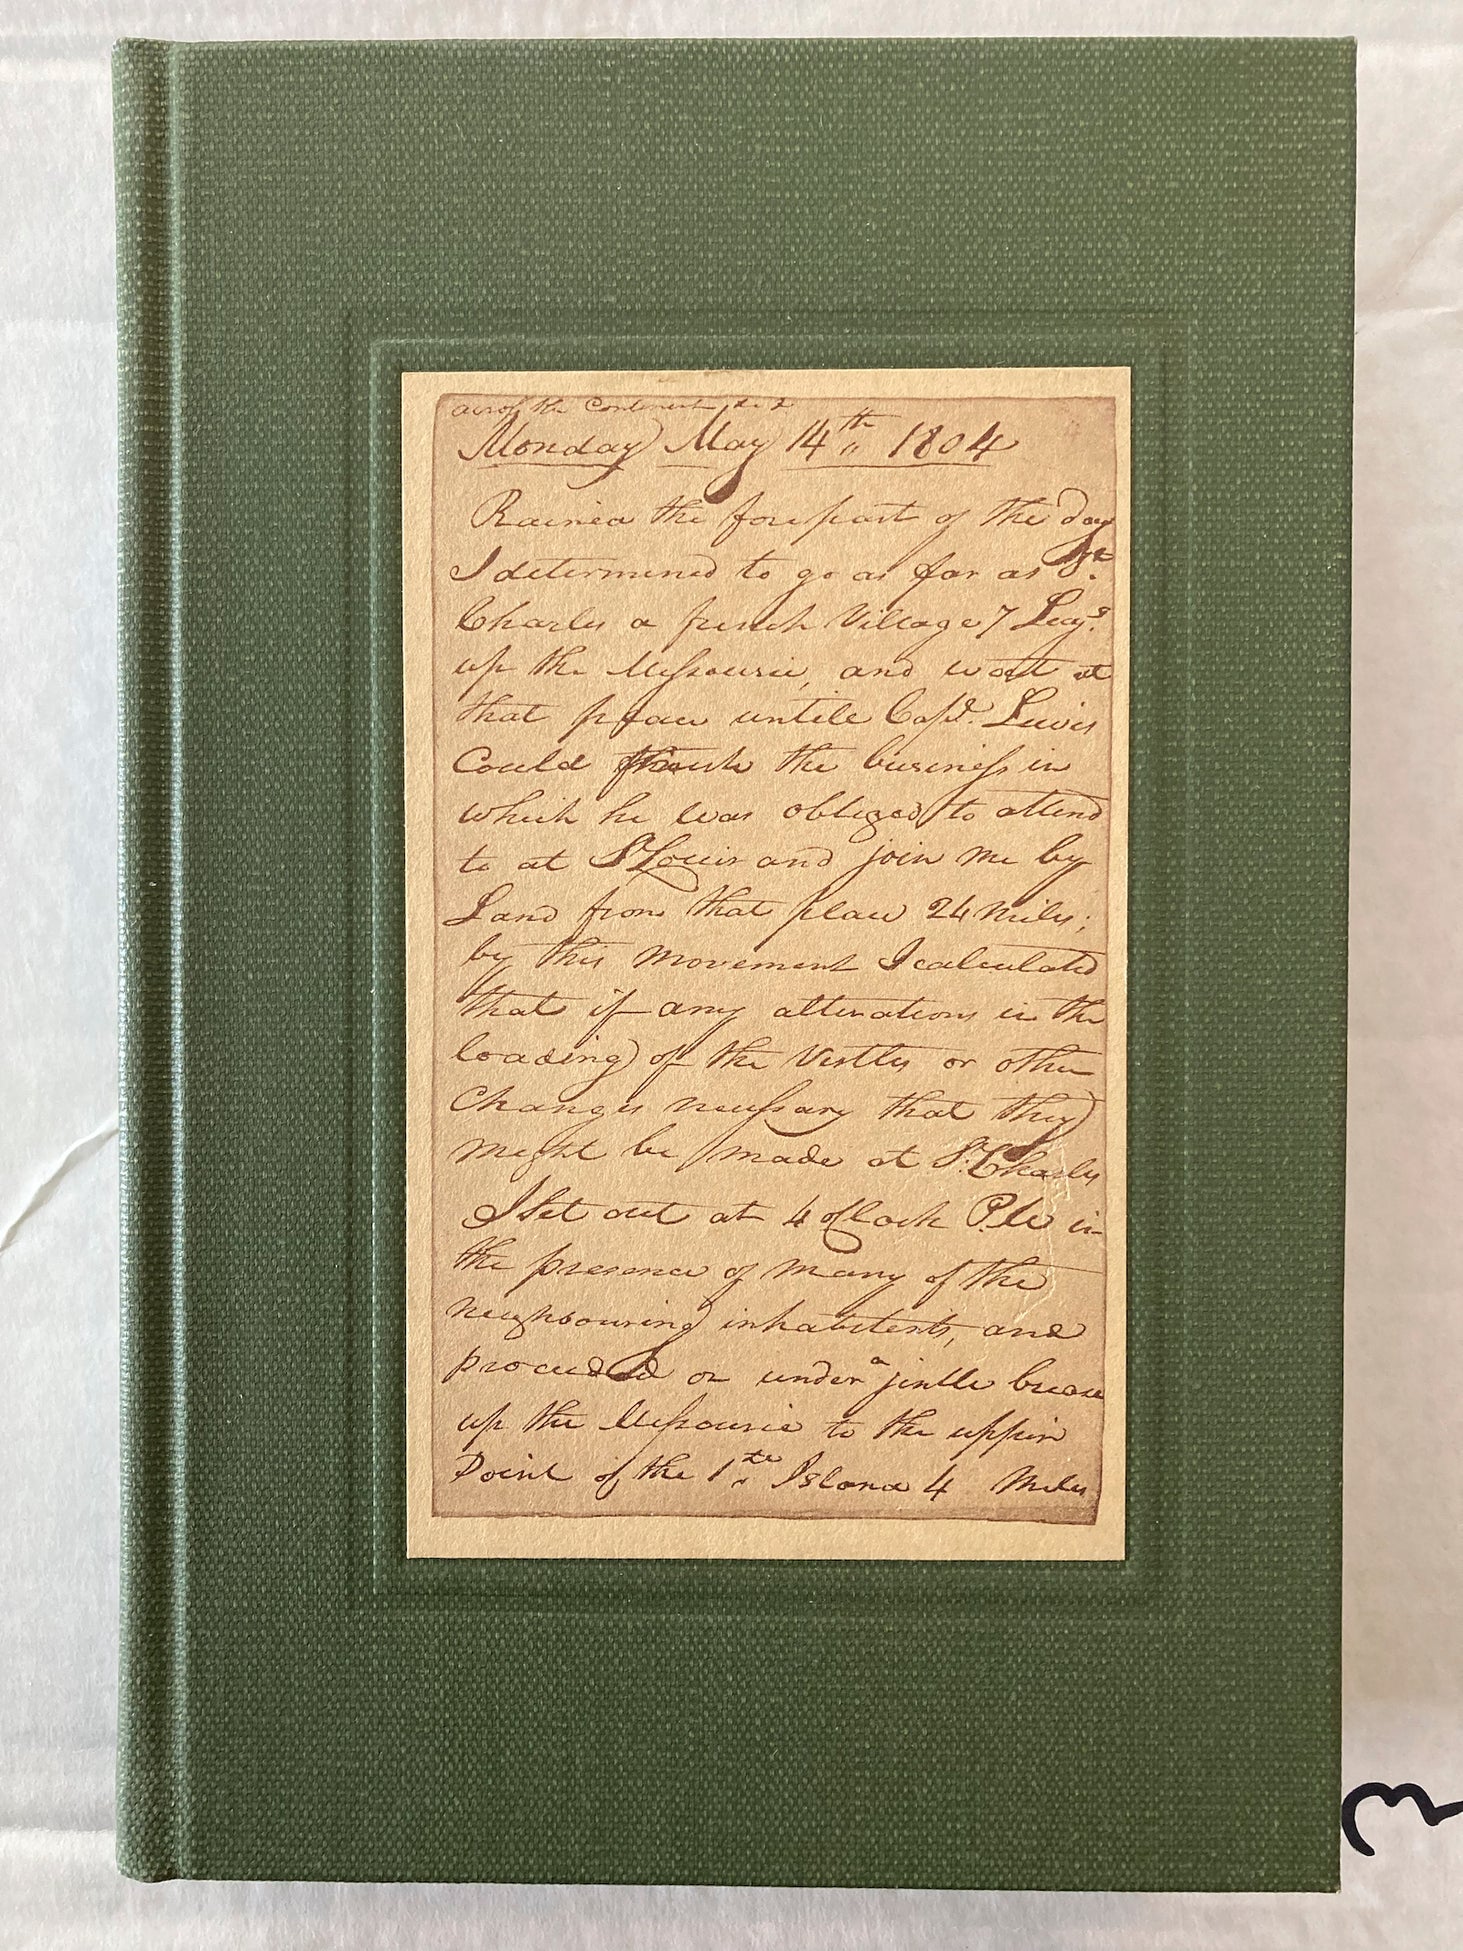 across the Continent &c &
Monday May 14th 1804
Rained the forepart of the day
I determined to go as far as St.
Charles a french Village 7 Leags.
up the Missourie, and wait at
that place untile Capt. Lewis
Could finish the business in
which he was obliged to attend
to at St Louis and join me by
Land from that place 24 miles;
by this movement I calculated
that if any alterations in the
loading of the Vestles or other
Changes necessary that they
might be made at St. Charles
I Set out at 4 oClock P.M in
the presence of many of the
neighbouring inhabitents, and
proceeded on under a jentle brease
up the Missourie to the upper
Point of the 1st Island 4 Miles